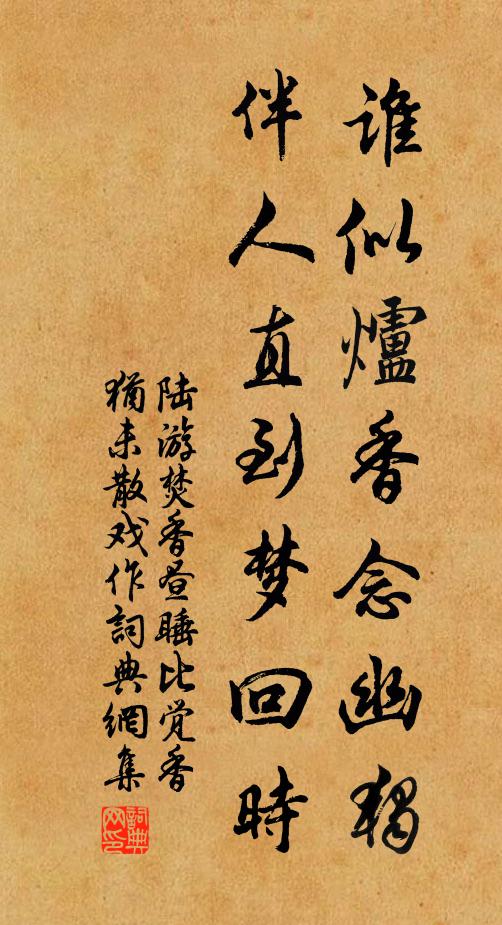 誰似爐香念幽獨
伴人直到梦回時
陆游焚香昼睡比觉香
猶未散戏作詞典網集
詞典
网印